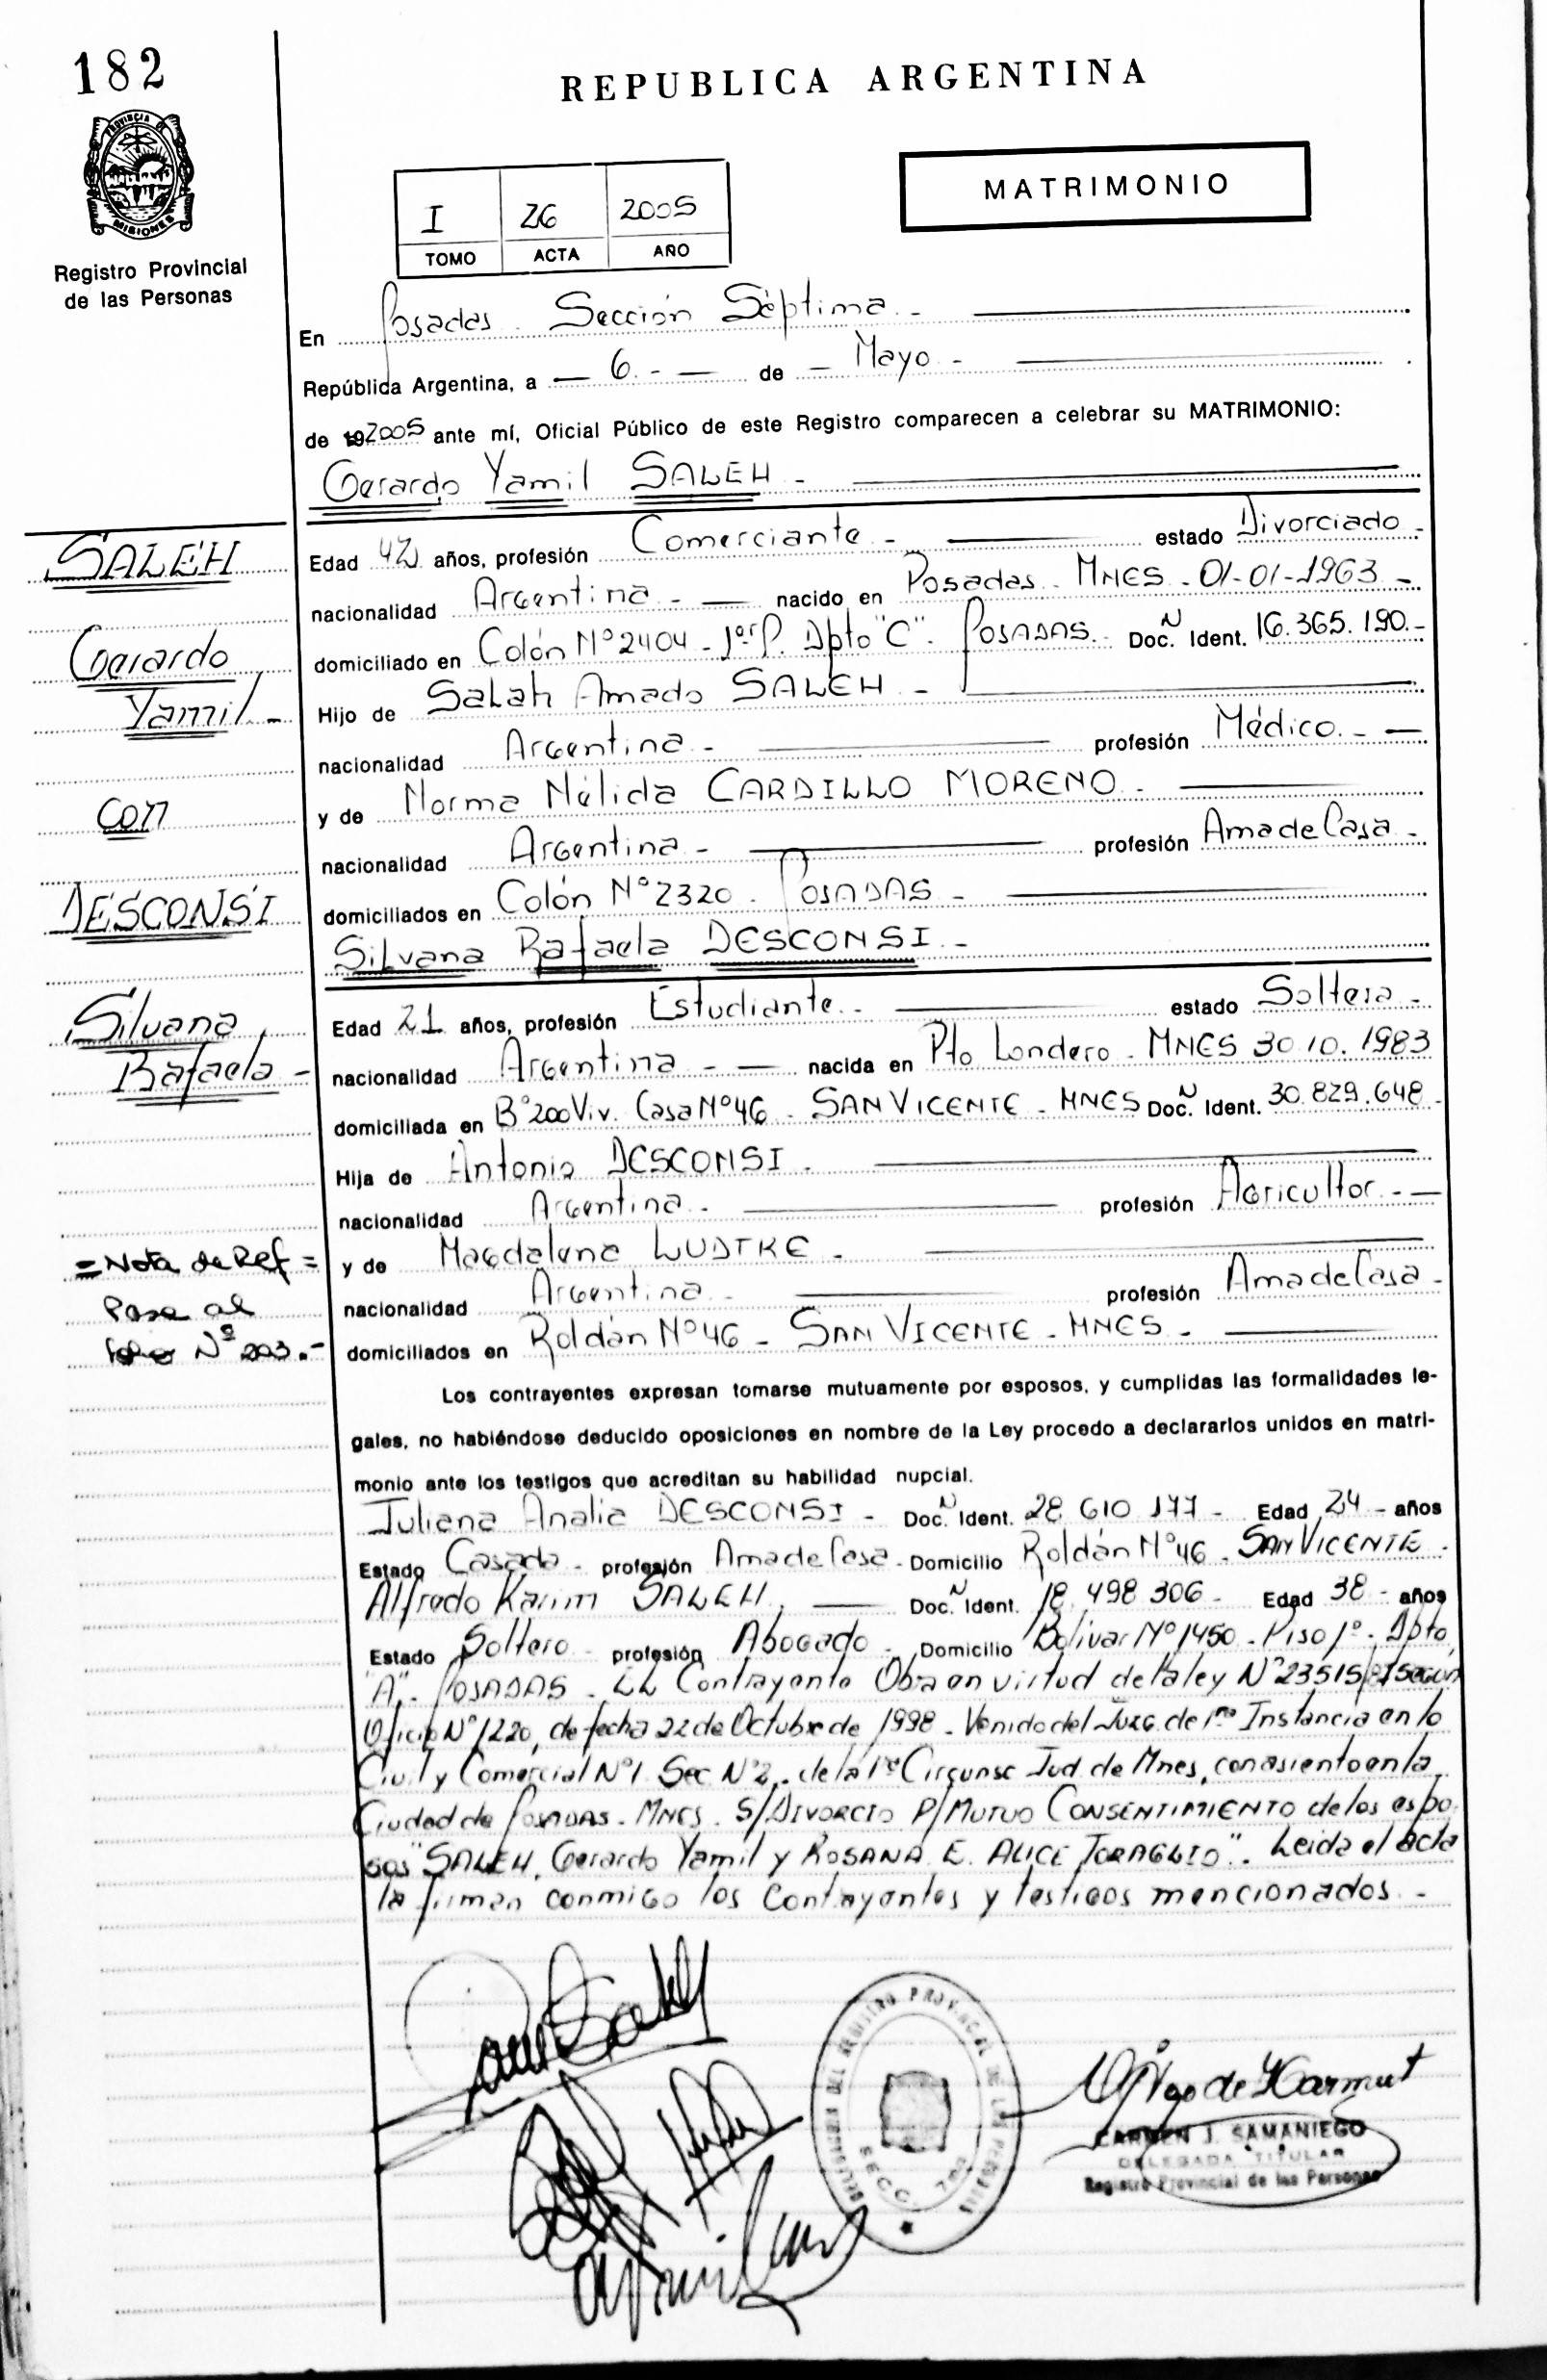 182
REPUBLICA ARGENTINA
PROVINCIA DE
MISIONES
Registro Provincial
de las Personas
MATRIMONIO
I 26 2005
TOMO ACTA AÑO
En Posadas - Sección Séptima -
República Argentina, a — 6 - — de — Mayo -
de 192005 ante mí, Oficial Público de este Registro comparecen a celebrar su MATRIMONIO:
Gerardo Yamil SALEH -
Edad 42 años, profesión Comerciante - estado Divorciado -
nacionalidad Argentina - — nacido en Posadas - MNES - 01-01-1963 -
domiciliado en Colón Nº 2404 - 1er P. Dpto "C" - POSADAS - Doc. N Ident. 16.365.190.-
Hijo de Salah Amado SALEH -
nacionalidad Argentina - profesión Médico. - —
y de Norma Nélida CARDILLO MORENO -
nacionalidad Argentina - profesión Ama de Casa -
domiciliados en Colón Nº 2320 - POSADAS -
Silvana Rafaela DESCONSI -
Edad 21 años, profesión Estudiante - estado Soltera -
nacionalidad Argentina - — nacida en Pto Londero - MNES 30.10.1983
domiciliada en Bº 200 Viv. Casa Nº 46 - SAN VICENTE - MNES Doc. N Ident. 30.829.648 -
Hija de Antonio DESCONSI -
nacionalidad Argentina - profesión Agricultor - —
y de Magdalena LUDTKE -
nacionalidad Argentina - profesión Ama de Casa -
domiciliados en Roldán Nº 46 - SAN VICENTE - MNES -
Los contrayentes expresan tomarse mutuamente por esposos, y cumplidas las formalidades le-
gales, no habiéndose deducido oposiciones en nombre de la Ley procedo a declararlos unidos en matri-
monio ante los testigos que acreditan su habilidad nupcial.
Juliana Analia DESCONSI - Doc. N Ident. 28.610.177 - Edad 24 - años
Estado Casada - profesión Ama de Casa - Domicilio Roldán Nº 46 - SAN VICENTE -
Alfredo Karim SALEH, — Doc. N Ident. 18.498.306 - Edad 38 - años
Estado Soltero - profesión Abogado - Domicilio Bolivar Nº 1450 - Piso 1º - Dpto
"A" - POSADAS - EL Contrayente Obra en virtud de la ley Nº 23515/87 según
Oficio Nº 1220, de fecha 22 de Octubre de 1998 - Venido del Juzg. de 1ra Instancia en lo
Civil y Comercial Nº 1 Sec Nº 2, de la 1ra Circunsc Jud. de Mnes, con asiento en la
Ciudad de POSADAS - MNES. S/DIVORCIO P/MUTUO CONSENTIMIENTO de los espo-
sos "SALEH, Gerardo Yamil y ROSANA E. ALICE TORAGLIO". Leida el acta
la firman conmigo los Contrayentes y testigos mencionados. -
SALEH
Gerardo
Yamil -
con
DESCONSI
Silvana
Rafaela -
= Nota de Ref =
Pase al
folio Nº 203.-
DELEGACION DEL REGISTRO PROVINCIAL DE LAS PERSONAS
SECC. 7ma
CARMEN J. SAMANIEGO
DELEGADA TITULAR
Registro Provincial de las Personas